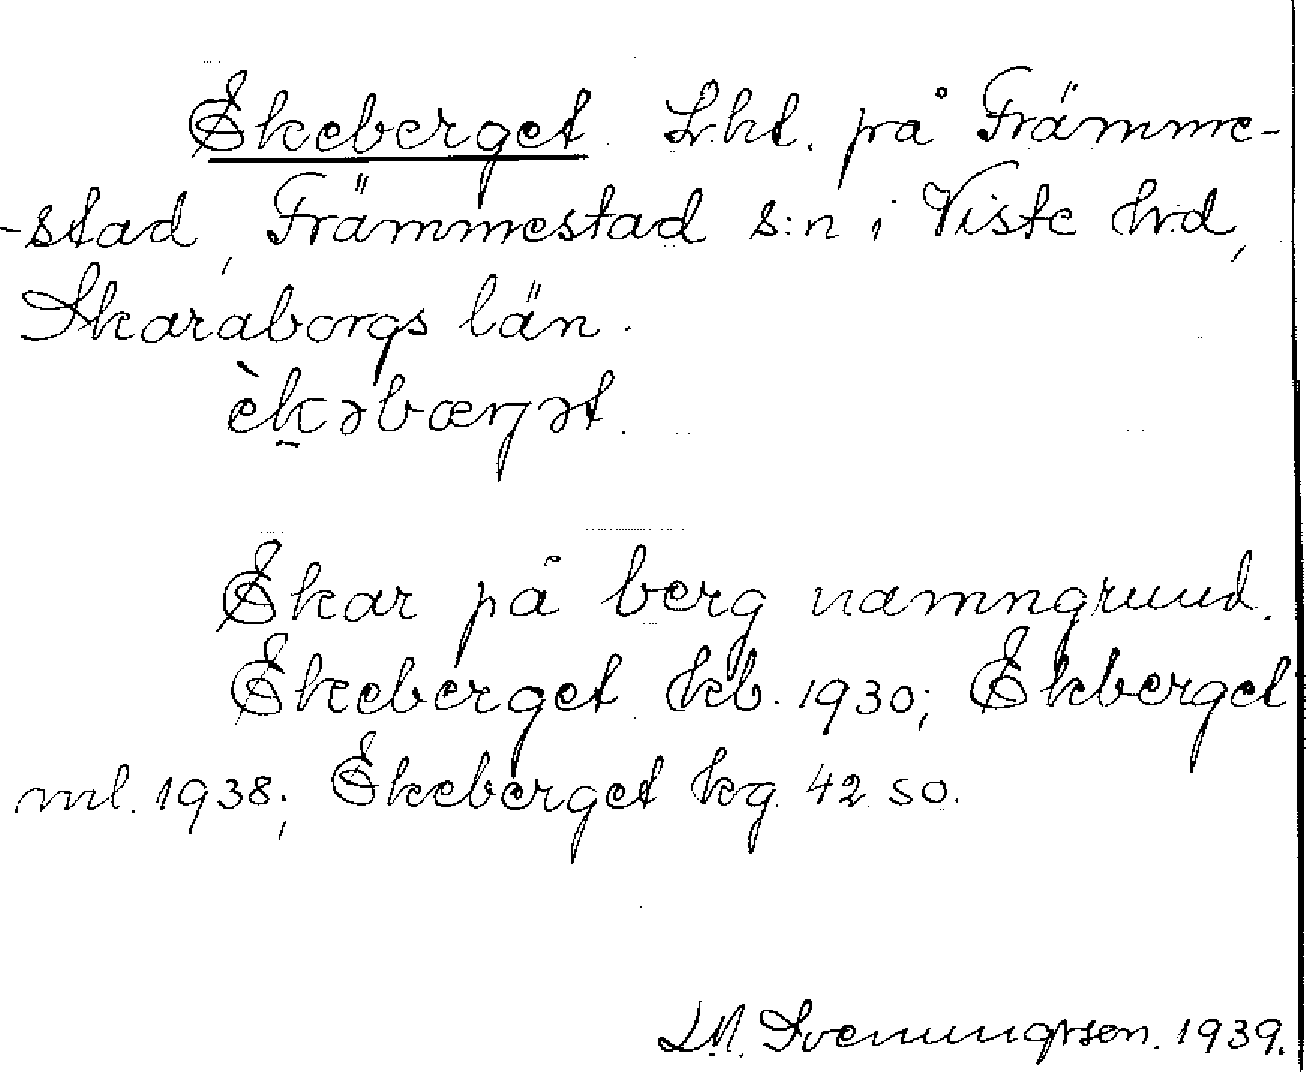 Ekeberget. Lht. på Främme-
-stad, Främmestad s:n i Viste hd,
Skaraborgs län.
èkəbærjət.
Ekar på berg namngrund.
Ekeberget kb. 1930; Ekberget
ml. 1938; Ekeberget kg. 42 SO.
Svenungsson. 1939.